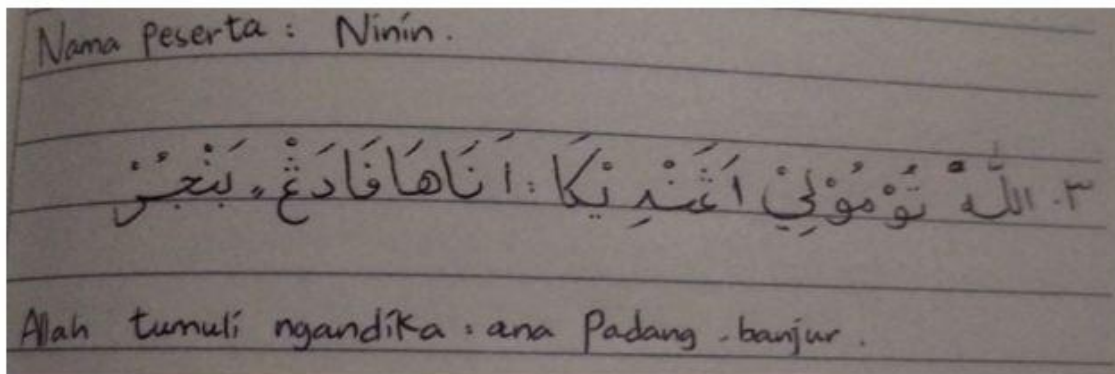 Nama Peserta : Ninin.
٣. اللّٰهُ تُوْمُوْلِيْ اَڠَنْدِيْكَا : اَنَاهَا فَادَڠْ ، بَنْجُرْ
Allah tumuli ngandika : ana Padang . banjur .